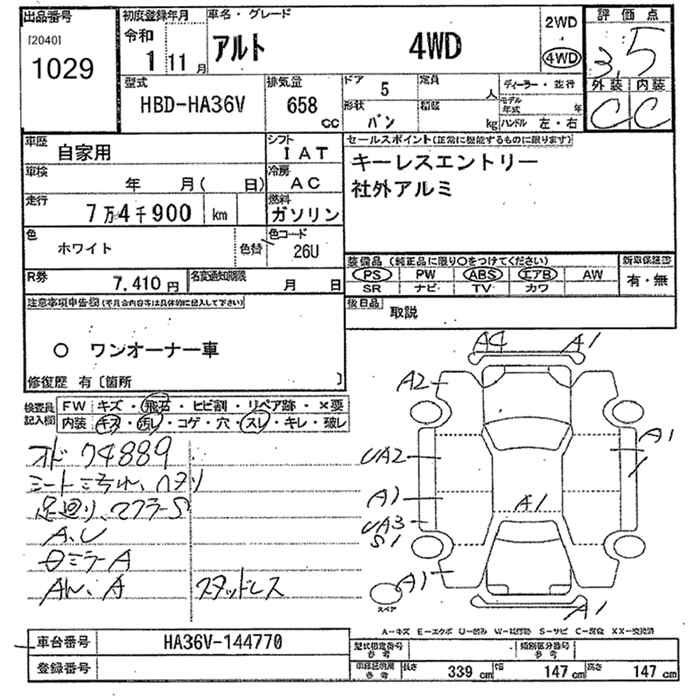 出品番号 初度登録年月 車名・グレード 2WD 評価点
[2040] 令和
1029 1 11月 アルト 4WD 4WD 3.5
型式 排気量 ドア 5 定員 人 ディーラー・並行 外装 内装
HBD-HA36V 658 cc 形状 バン 積載 kg モデル年式 年 C C
ハンドル 左・右
車歴 自家用 シフト IAT セールスポイント(正常に機能するものに限ります)
車検 年 月( 日) 冷房 AC キーレスエントリー
社外アルミ
走行 7万4千900 km 燃料 ガソリン
色 ホワイト 色替 色コード 26U
装備品(純正品に限り○をつけてください) 新車保証書
PS PW ABS エアB AW 有・無
SR ナビ TV カワ
R券 7,410円 名変通知期限 月 日
後日品 取説
注意事項申告欄(不具合内容等は具体的に記入して下さい)
○ ワンオーナー車
修復歴 有〔箇所 〕
検査員記入欄 FW キズ・飛石・ヒビ割・リペア跡・×要
内装 キズ・汚レ・コゲ・穴・スレ・キレ・破レ
A4 A1
A2
オド 74889
UA2 A1
シート
足廻り、マフラーS
A1 A1
UA3
S1
A、U
ミラーA
AW、A スタッドレス
A1
スペア
A1
A-キズ E-エクボ U-凹み S-サビ C-腐食 XX-交換済
車台番号 HA36V-144770 型式指定番号 参考 類別区分番号 参考
登録番号 参考 長さ 339 cm 幅 147 cm 高さ 147 cm